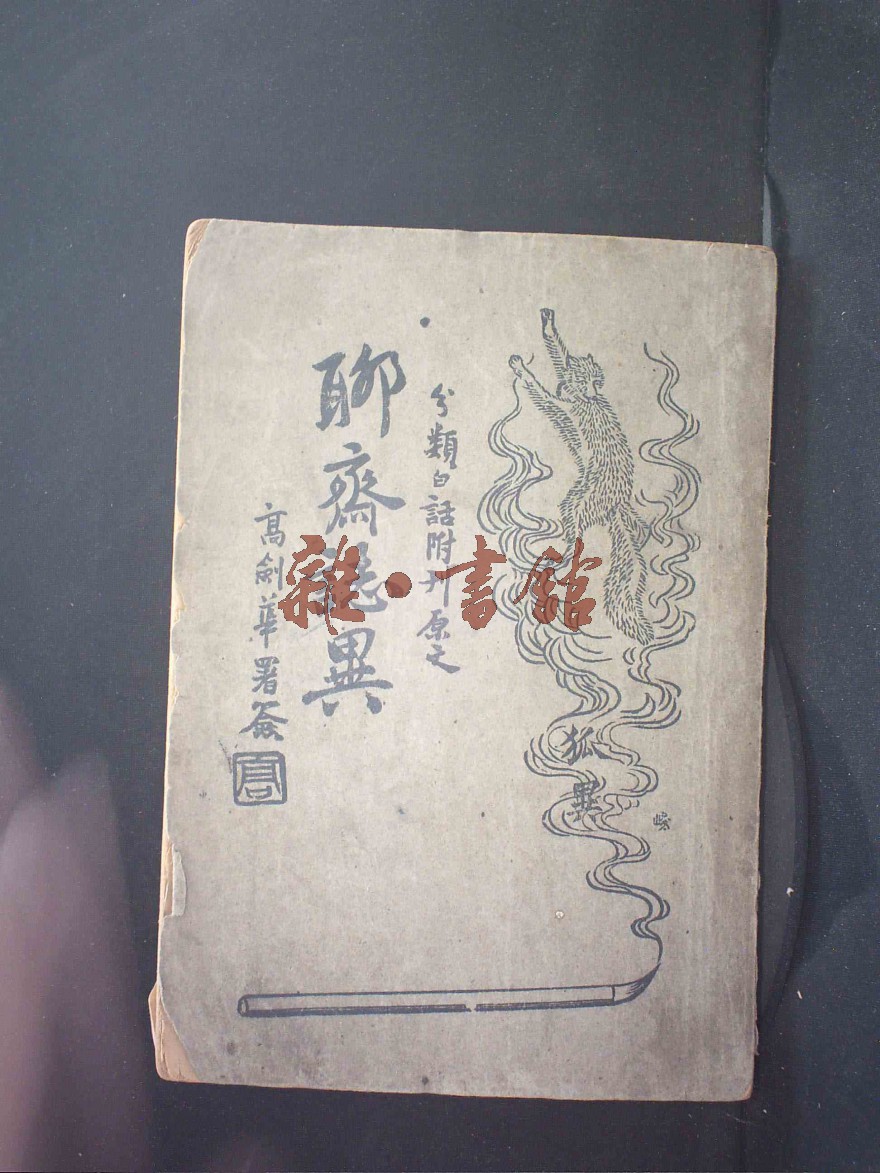 分類白話附刊原文
聊齋誌異
高劍華署簽
狐異
雜·書館